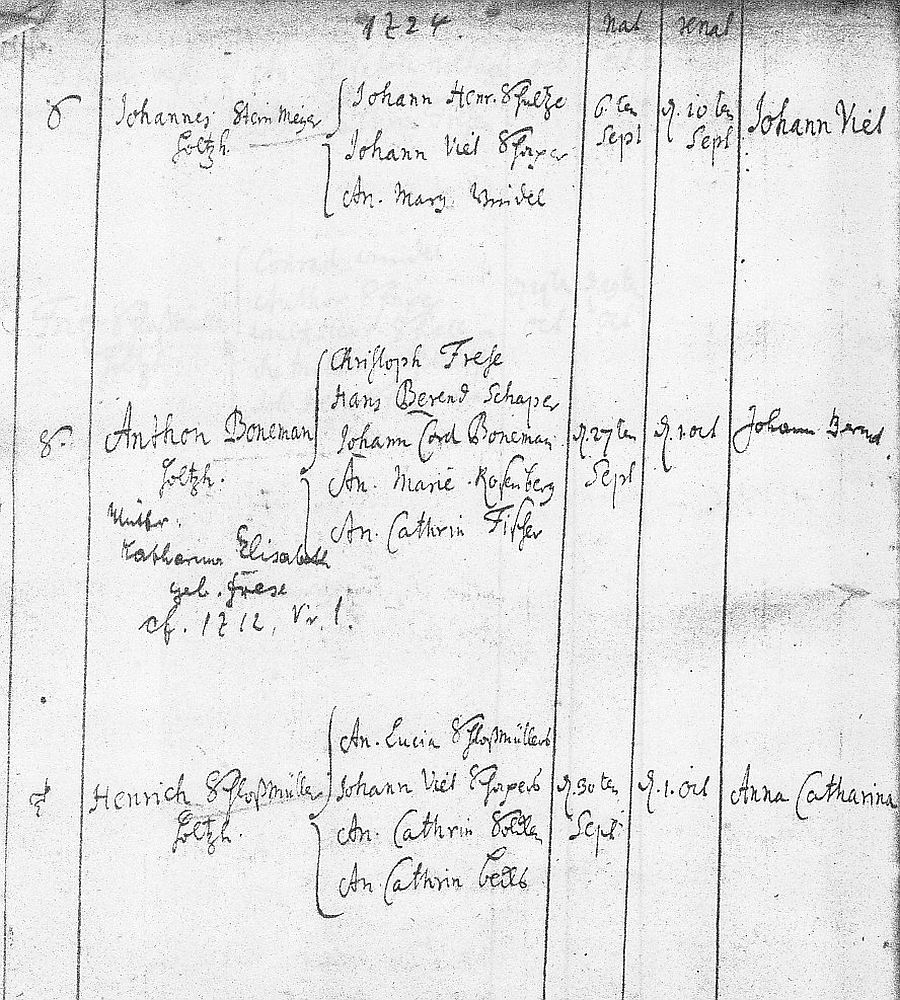 1724.
nat
renat
Johannes Stein Meyer
Holtzh.
Johann Henr. Schultze
Johann Viet Schaper
An. Mary
6.ten
Sept
d. 10 ten
Sept
Johann Viet
Christoph Frese
Hans Berend Schaper
Anthon Boneman
Holtzh.
Johann Cord Boneman
An. Marie Rosenberg
An. Cathrin Fischer
d. 27 ten
Sept
d. 1. oct
Johann Bernd
Mutter.
Katharina Elisabeth
geb. Frese
cf. 1712, Nr. 1.
An. Lucia Schloßmüllers
Henrich Schloßmüller
Holtzh.
Johann Viet Schapers
An. Cathrin
An Cathrin
d. 30 ten
Sept
d. 1. Oct
Anna Catharina